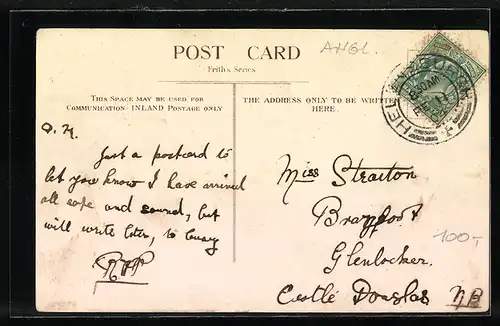 ANGL.
POST CARD
Frith's Series
THIS SPACE MAY BE USED FOR
COMMUNICATION INLAND POSTAGE ONLY
THE ADDRESS ONLY TO BE WRITTEN
HERE.
Just a postcard to
let you know I have arrived
all safe and sound, but
will write later, to
Miss Straiton
Glenlochar
Castle Douglas NB
100,-